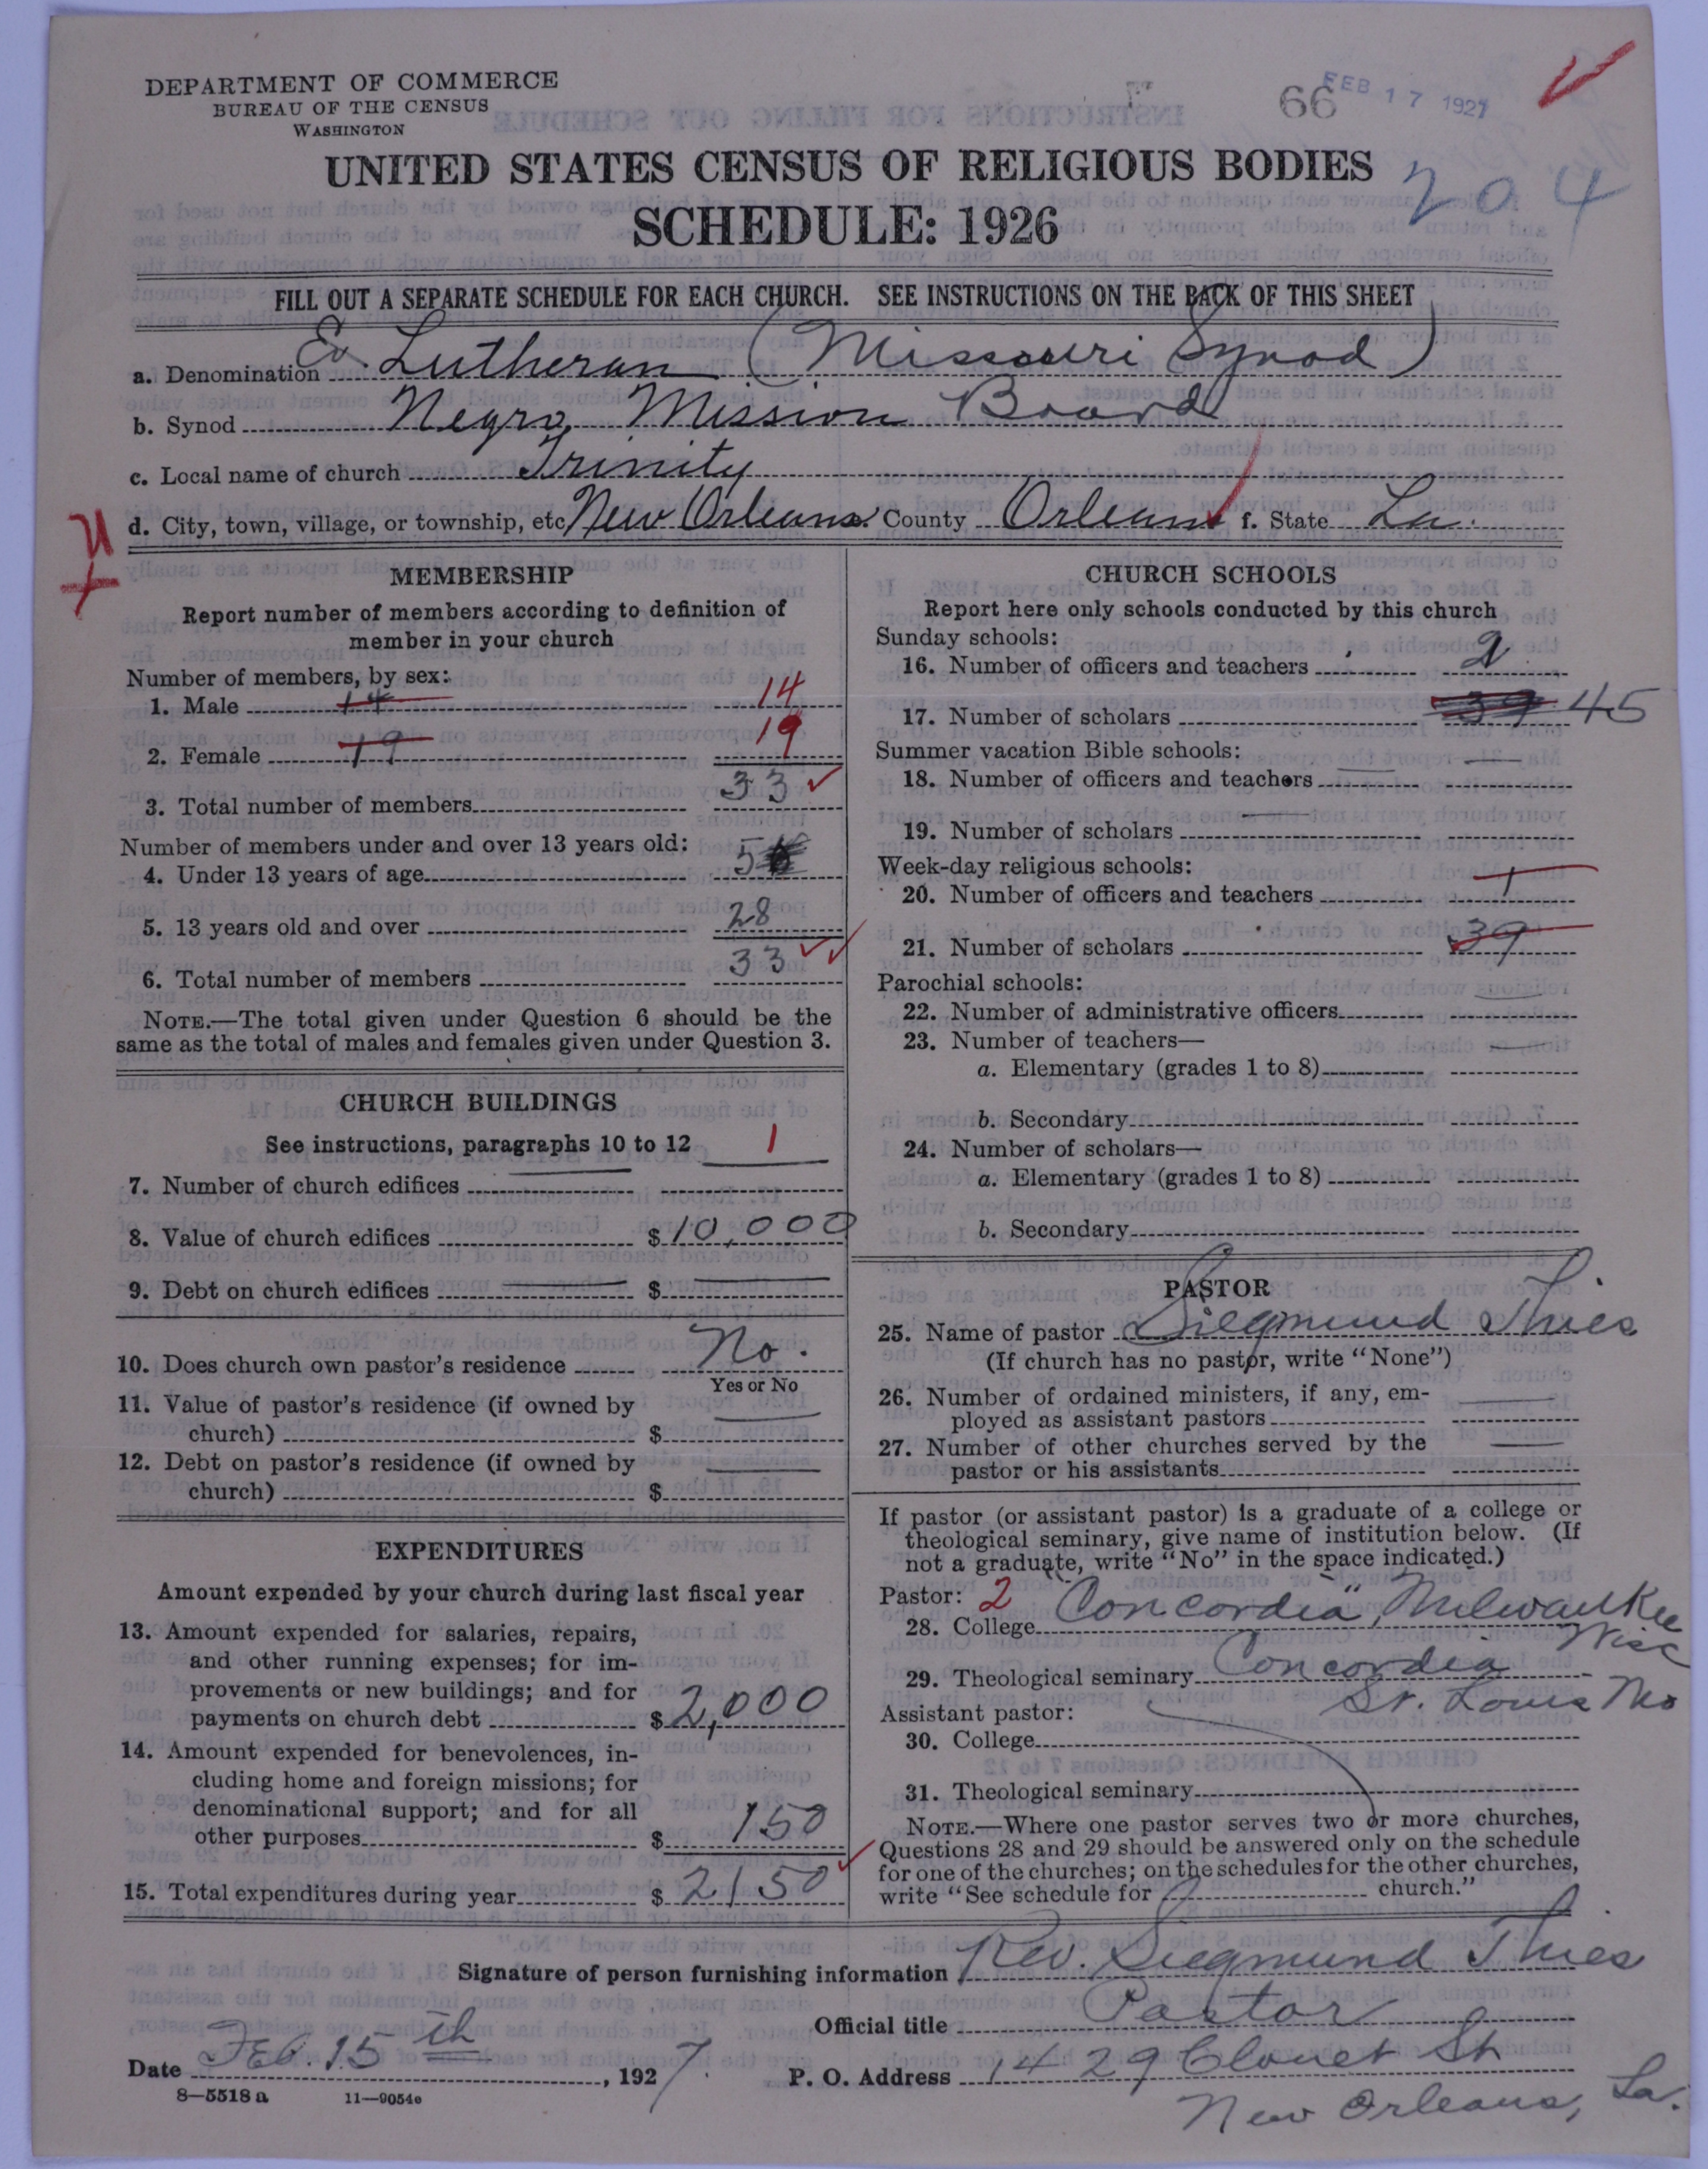 DEPARTMENT OF COMMERCE
BUREAU OF THE CENSUS
WASHINGTON
66 FEB 17 1927
UNITED STATES CENSUS OF RELIGIOUS BODIES
204
SCHEDULE: 1926
FILL OUT A SEPARATE SCHEDULE FOR EACH CHURCH. SEE INSTRUCTIONS ON THE BACK OF THIS SHEET
a. Denomination Ev. Lutheran (Missouri Synod)
b. Synod Negro Mission Board
c. Local name of church Trinity
d. City, town, village, or township, etc New Orleans County Orleans f. State La.
MEMBERSHIP
Report number of members according to definition of
member in your church
Number of members, by sex:
1. Male 14 14
2. Female 19 19
3. Total number of members 33
Number of members under and over 13 years old:
4. Under 13 years of age 5
5. 13 years old and over 28
6. Total number of members 33
NOTE.—The total given under Question 6 should be the
same as the total of males and females given under Question 3.
CHURCH BUILDINGS
See instructions, paragraphs 10 to 12 1
7. Number of church edifices
8. Value of church edifices $10,000
9. Debt on church edifices $
10. Does church own pastor's residence No.
Yes or No
11. Value of pastor's residence (if owned by
church) $
12. Debt on pastor's residence (if owned by
church) $
EXPENDITURES
Amount expended by your church during last fiscal year
13. Amount expended for salaries, repairs,
and other running expenses; for im-
provements or new buildings; and for
payments on church debt $2,000
14. Amount expended for benevolences, in-
cluding home and foreign missions; for
denominational support; and for all
other purposes $ 150
15. Total expenditures during year $ 2150
CHURCH SCHOOLS
Report here only schools conducted by this church
Sunday schools:
16. Number of officers and teachers 2
17. Number of scholars 39 45
Summer vacation Bible schools:
18. Number of officers and teachers
19. Number of scholars
Week-day religious schools:
20. Number of officers and teachers 1
21. Number of scholars 39
Parochial schools:
22. Number of administrative officers
23. Number of teachers—
a. Elementary (grades 1 to 8)
b. Secondary
24. Number of scholars—
a. Elementary (grades 1 to 8)
b. Secondary
PASTOR
25. Name of pastor Siegmund Thies
(If church has no pastor, write "None")
26. Number of ordained ministers, if any, em-
ployed as assistant pastors
27. Number of other churches served by the
pastor or his assistants
If pastor (or assistant pastor) is a graduate of a college or
theological seminary, give name of institution below. (If
not a graduate, write "No" in the space indicated.)
Pastor: 2
28. College "Concordia", Milwaukee
Wisc
29. Theological seminary Concordia
St. Louis Mo
Assistant pastor:
30. College
31. Theological seminary
NOTE.—Where one pastor serves two or more churches,
Questions 28 and 29 should be answered only on the schedule
for one of the churches; on the schedules for the other churches,
write "See schedule for church."
Signature of person furnishing information Rev. Siegmund Thies
Official title Pastor
Date Feb. 15th, 1927. P. O. Address 1429 Clouet St
New Orleans, La.
8—5518 a 11—9054e